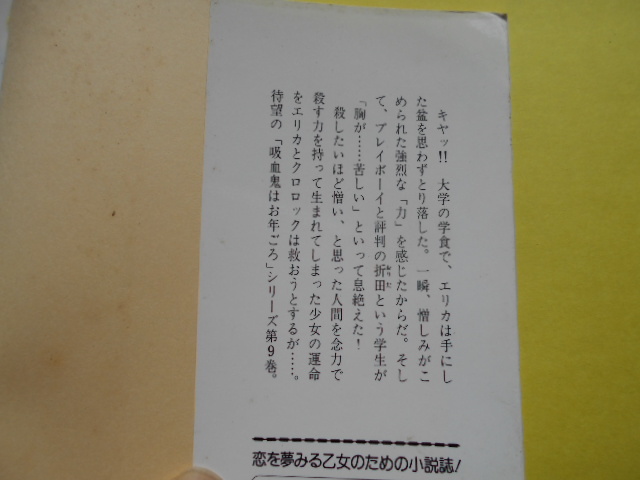 キヤッ!! 大学の学食で、エリカは手にし
た盆を思わずとり落した。一瞬、憎しみがこ
められた強烈な「力」を感じたからだ。そし
て、プレイボーイと評判の折田という学生が
おりた
「胸が……苦しい」といって息絶えた!
殺したいほど憎い、と思った人間を念力で
殺す力を持って生まれてしまった少女の運命
をエリカとクロロックは救おうとするが……。
待望の「吸血鬼はお年ごろ」シリーズ第9巻。
恋を夢みる乙女のための小説誌!